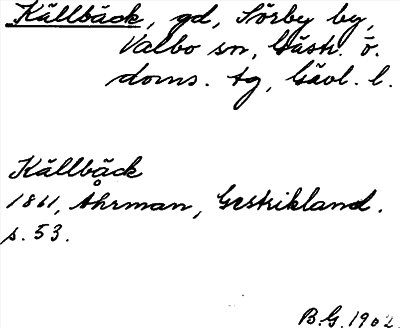 Källbäck, gd, Sörby by,
Valbo sn, Gästr. ö.
doms. tg, Gävl. l.
Källbäck
1861, Åhrman, Gestrikland.
s. 53.
B.G. 1902.